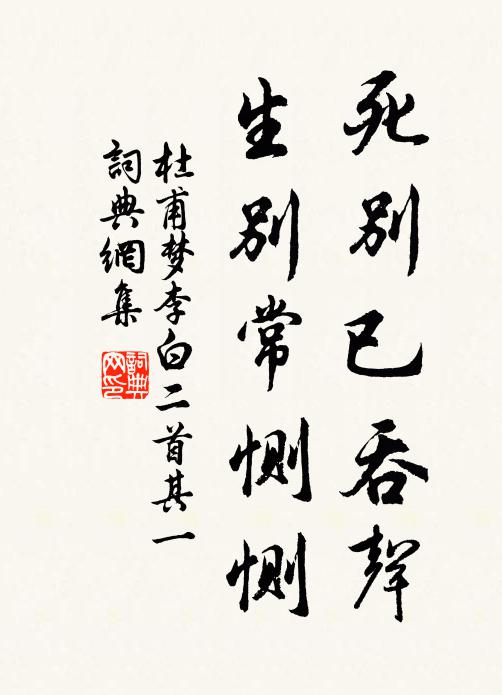 死别已吞聲
生别常惻惻
杜甫梦李白二首其一
詞典網集
詞典网印